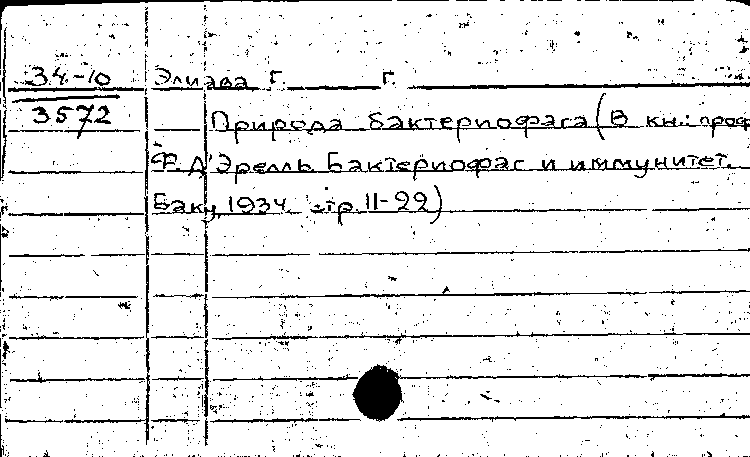 34-10 Элиава Г. Г.
3572 Природа бактериофага (В кн.: проф
Ф. Д'Эрелль Бактериофаг и иммунитет.
Баку, 1934. стр 11-22)